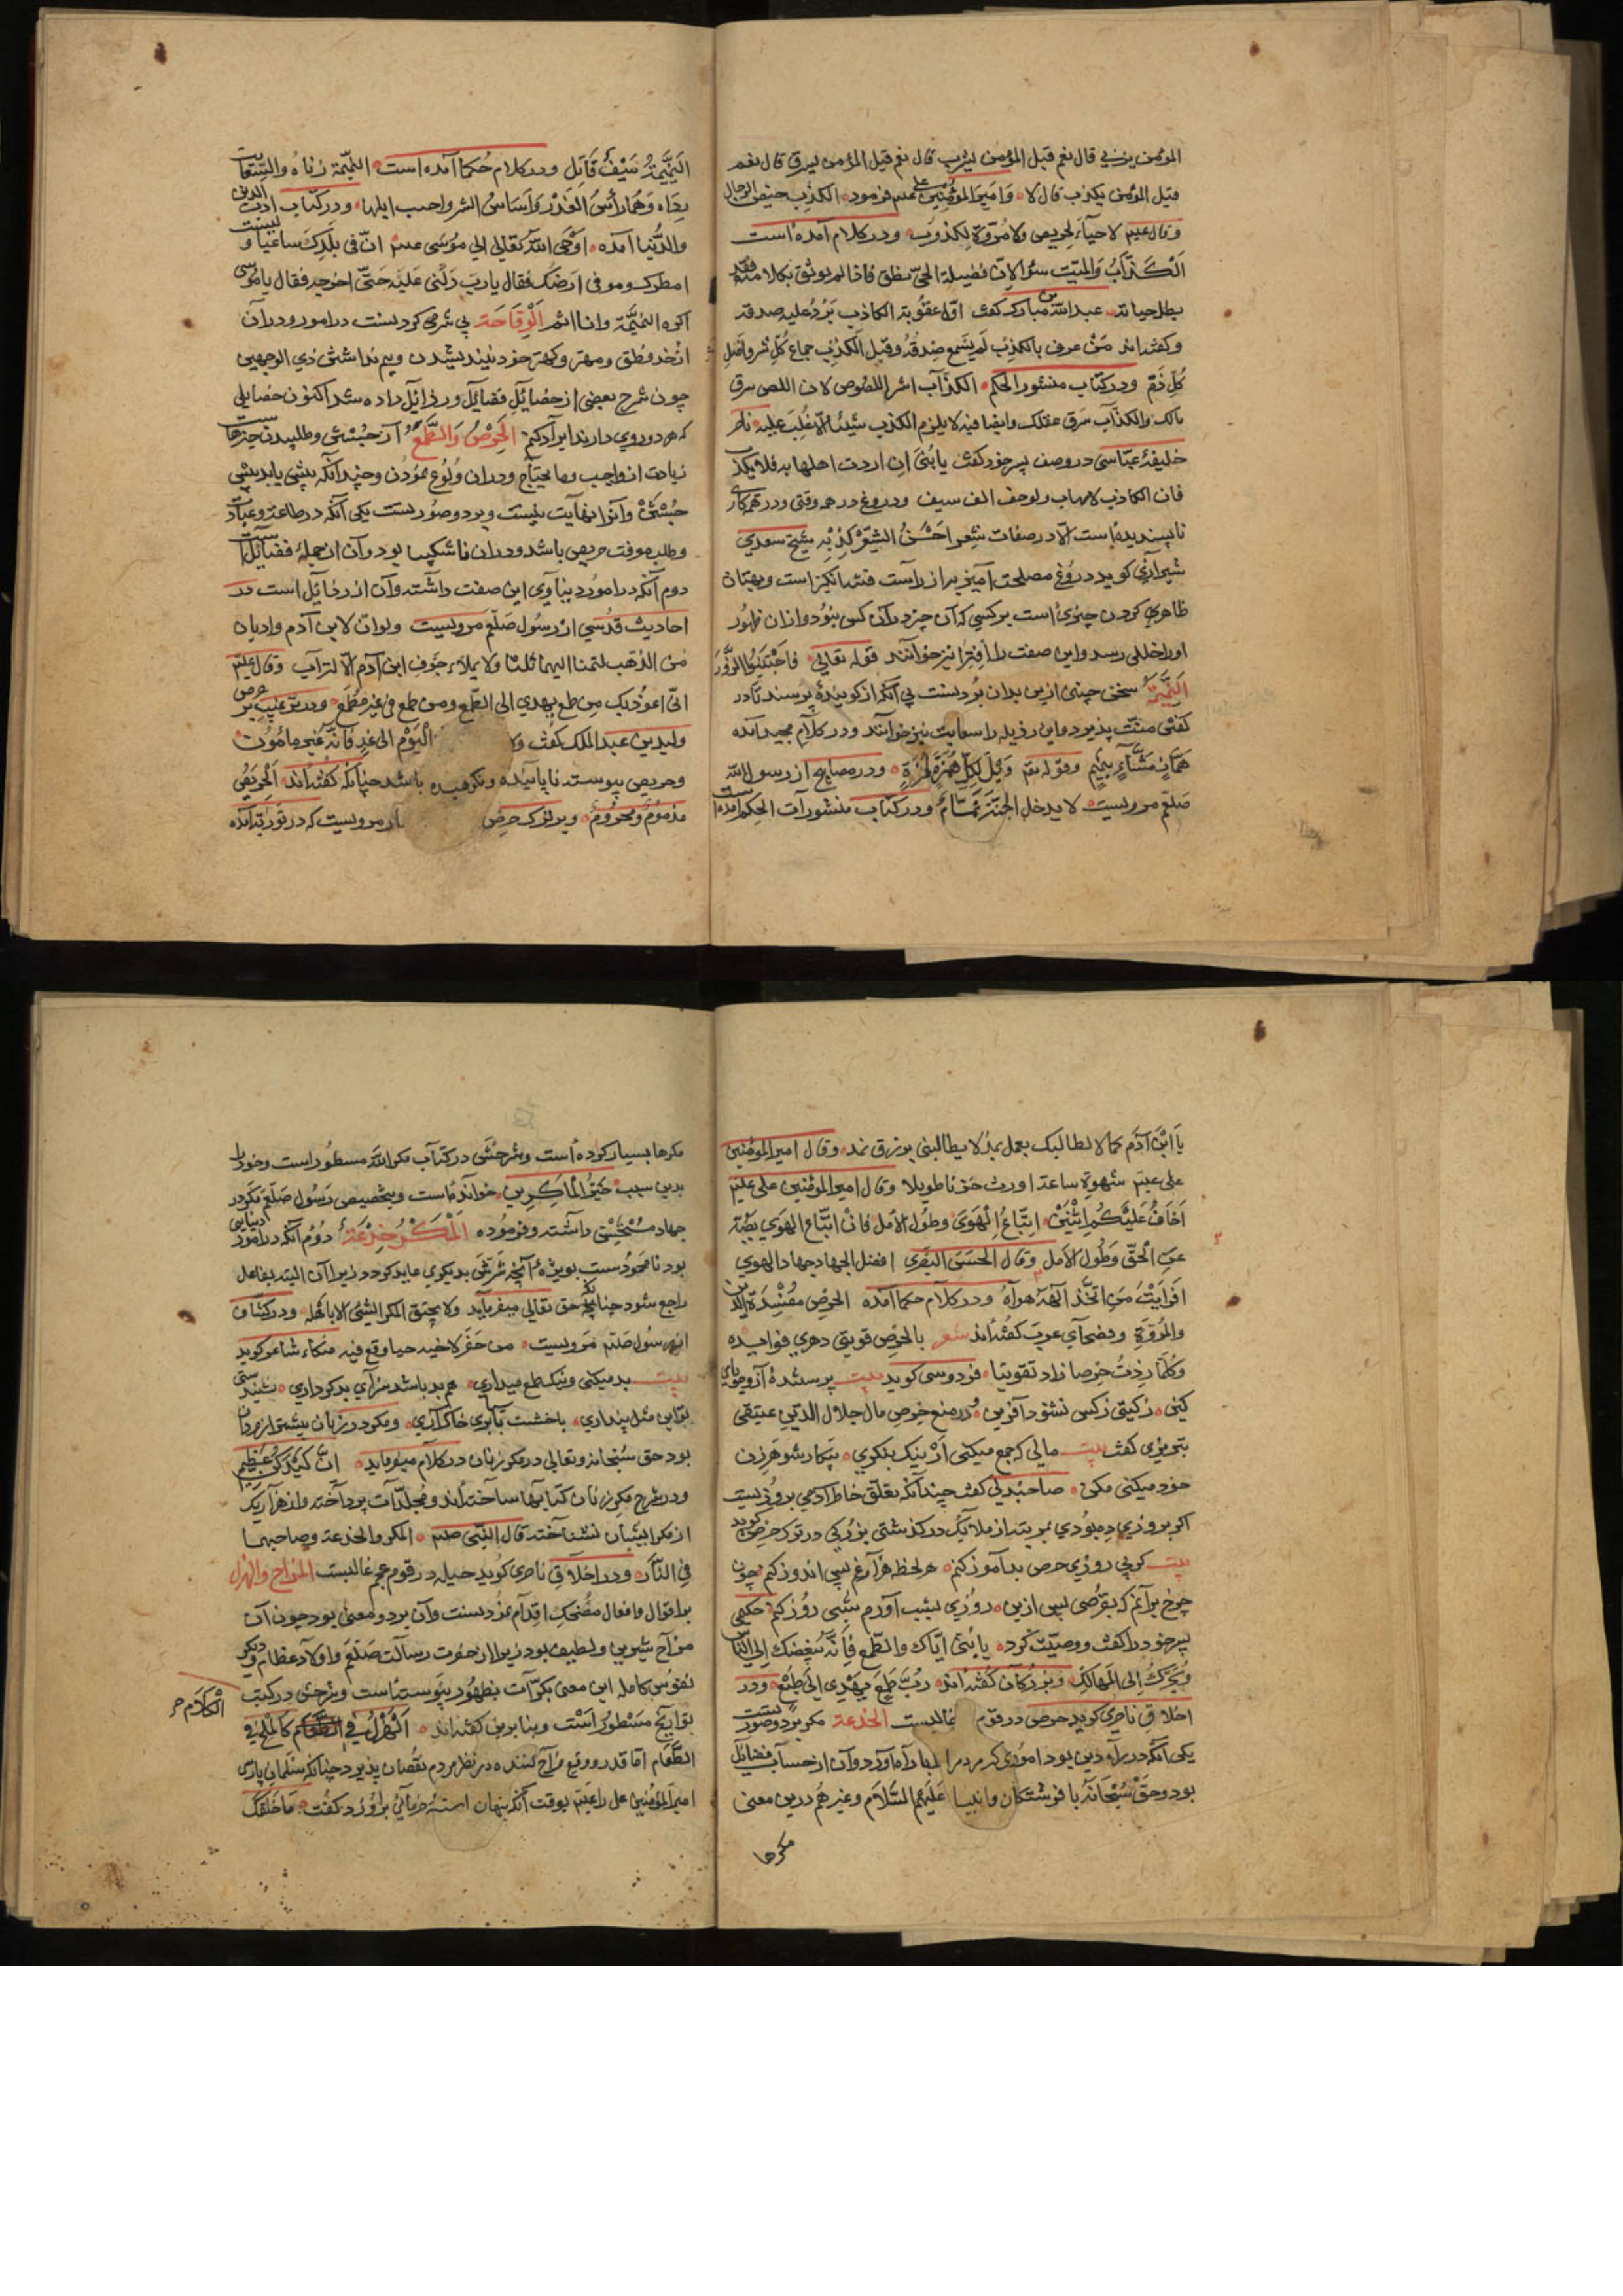 المؤمن یزنی قال نعم قیل المؤمن لیشرب قال نعم قیل المؤمن لیسرق قال نعم
قیل المؤمن یکذب قال لا و امیرالمؤمنین علی عیم فرمود الکذب حیض الرجال
وقال عیم لا حیآء لحریص ولا مروّة لکذوب ودر کلام آمده است
الکذّاب والمیّت سوآء لانّ فضیلة الحیّ نطق فاذا لم یوثق بکلامه فقد
بطل حیاته عبدالله بن مبارک کفت اوّل عقوبة الکاذب یردّ علیه صدقه
وکفته اند من عرف بالکذب لم یسمع صدقه وقیل الکذب جماع کل شر واصل
کلّ ذمّ ودر کتاب منثور الحکم الکذّاب اشر اللصوص لان اللص سرق
مالک والکذّاب سرق عقلک وایضا فیه لا یلزم الکذب شیئا الّا غلب علیه
خلیفهٔ عبّاسی در وصف پسر خود کفت یا بنیّ ان اردت اهلها به فلا تکذب
فان الکاذب لا یهاب ولو حف الف سیف ودروغ در همه وقتی ودر همه کاری
ناپسندیده است الّا در صفات شعر احسن الشعر کذبه شیخ سعدی
شیرآزی کوید دروغ مصلحت آمیز به از رآست فتنه انکیز است وبهتان
ظاهر کردن چیزی است بر کسی که آن چیز در آن کس نبود واز آن ظهور
او را خللی رسد واین صفت را افترا نیز خوآنند قوله تعالی فاجتنبوا الزور
النمیمة سخن چینی ازین بدان بردنست بی آنکه از کوینده پرسند تا در
کفتن منّت پذیرد واین رذیله را سعایت نیز خوآنند ودر کلام مجید آمده
همّاز مشّآء بنمیم وقوله تعم ویل لکلّ همزة لمزة ودر مصابیح از رسول الله
صلعم مرویست لا یدخل الجنّة نمّام ودر کتاب منشورآت الحکم آمده است
النمیمة سیف قاتل ودر کلام حکما آمده است النمیمة دناءة والسعایت
رداءة وهما رأس الغدر واساس الشر واجب ایلها ودر کتاب ادب الدین
والدّنیا آمده اوحی الله تعالی الی موسی عیم انّ فی بلدک ساعیا ولیست
امطرک وهو فی ارضک فقال یا ربّ دلنی علیه حتّی اخرجه فقال یا موسی
اکره النمیمة وانا انم الوقاحة بی شرمی کردنست در امور ودر آن
از خرد مطلق ومهتر وکهتر خود نیندیشیدن وبیم نداشتن ذی الوجهین
چون شرح بعضی از خصایل فضایل ورذایل داده شد اکنون خصایلی
که هر دو روی دارند ایرآد کنم الحرص والطمع آز جستن وطلبیدن چیزها
زیادت از واجب وما یحتاج ودر آن ولوع نمودن وچندآنکه بیشی یابد بیشی
جستن وآنرا نهایت نیست وبر دو صورتست یکی آنکه در طاعت وعبادت
وطلب معرفت حریص باشد ودر آن ناشکیبا بود وآن از جملهٔ فضایلست
دوم آنکه در امور دنیاوی این صفت داشته وآن از رذایل است در
احادیث قدسی از رسول صلّعم مرویست ولو ان لابن آدم وادیان
من الذهب لتمنا الیهما ثلثا ولا یملاء جوف ابن آدم الّا الترآب وقال علیم
انّی اعوذ بک من طمع یهدی الی الطّبع ومن طمع فی غیر مطمع ودر ترغیب بر حرص
ولید بن عبد الملک کفت ولا الیوم الی غد فانّه غیر مامون
وحریص پیوسته ناپاینده ونکوهیده باشد چنانکه کفته اند الحریص
مذموم ومحروم وبر ترک حرص مرویست که در توریة آمده
یا ابن آدم کما لا اطالبک بعمل غد لا تطالبنی برزق غد وقال امیر المؤمنین
علی عیم شهوة ساعة اورثت حزنا طویلا وقال امیر المؤمنین علی علیم
اخاف علیکم اثنین اتباع الهوی وطول الامل فان اتّباع الهوی یصدّ
عن الحقّ وطول الامل وقال الحسن البصری افضل الجهاد جهاد الهوی
افرایت من اتّخذ آلهه هوآه ودر کلام حکما آمده الحرص مفسدة الدین
والمروّة وفصحآی عرب کفته اند شعر بالحرص فوّیتنی دهری فوایده
وکلّما زدت حرصا زاد تفویتا فردوسی کوید بیت پرستندهٔ آز وجویای
کین ز کیتی ز کس نشنود آفرین ودر منع حرص مال جلال الدّین عتیقی
تبریزی کفت بیت مالی که جمع میکنی از نیک بنکری پیکار شوهر زن
خود میکنی مکن صاحبدلی کفت چندآنکه تعلّق خاطر آدمی بروزیست
اکر بروزی ده بودی بمرتبه از ملایک در کذشتی بزرکی در ترک حرص کوید
بیت کویی روزی حرص بدآموز کنم هر لحظه هزآر غم پی اندوز کنم چون
چرخ برآنم که بقرضی پس ازین روزی بشب آورم شبی روز کنم حکیمی
پسر خود را کفت ووصیّت کرد یا بنیّ ایّاک والطّمع فانّه یبغضک الی النّاس
ویجرّک الی المهالک وبزرکان کفته اند ربّ طمع یهدی الی طبع ودر
اخلاق ناصری کوید حرص در قوم غالبست الخدعة مکر بر دو صورتست
یکی آنکه در رآه دین بود اموری که مردم را بدآم آورد وآن از حساب فضایل
بود وحقّ سبحانه با فرشتکان وانبیا علیهم السّلام وغیرهم درین معنی
مکرها
مکرها بسیار کرده است وشرحش در کتاب مکر الله مسطور است وخود را
بدین سبب خیر الماکرین خوآنده است وبتخصیص رسول صلّعم مکر در
جهاد مستحسن داشته وفرموده المکر خدعة دوم آنکه در امور دنیایی
بود نامحمودست بویژه آنچه شرّش بدیکری عاید کردد زیرا آن البته بفاعل
راجع شود چنانچه حق تعالی میفرماید ولا یحیق المکر السّیّئ الا باهله ودر کشّاف
از رسول صلعم مرویست من حفر لاخیه جبا وقع فیه منکبّا شاعر کوید
بیت بد میکنی ونیک طمع میداری هم بد باشد سزآی بدکردآری نشنیدستی
تو این مثل پنداری با خشت بآبری خاک آری ومکر در زنان بیشتر از مردان
بود حق سبحانه وتعالی در مکر زنان در کلام میفرماید انّ کیدکنّ عظیم
ودر شرح مکر زنان کتابها ساخته اند ومجلّدات پرداخته واز هزآر یک
از مکر ایشان نشناخته قال النّبی صلعم المکر والخدعة وصاحبهما
فی النّار ودر اخلاق ناصری کوید حیله در قوم عجم غالبست المزاح والهزل
بر اقوال وافعال مضحک اقدام نمودنست وآن بر دو معنی بود چون آن
مزاح شیرین ولطیف بود زیرا از حضرت رسالت صلّعم واولاد عظام ودیکر
نفوس کامله این معنی بکرّات بظهور پیوسته است وشرحش در کتب
توآریخ مسطور است وبنا برین کفته اند الهزل فی الکلام کالملح فی
الکلام
الطّعام امّا قدر ووقع مزاح کننده در نظر مردم نقصان پذیرد چنانکه سلمان پارسی
امیر المؤمنین علی را عیم بوقت آنکه پنهان استهٔ خرمائی برو زد کفت ما خلّفک